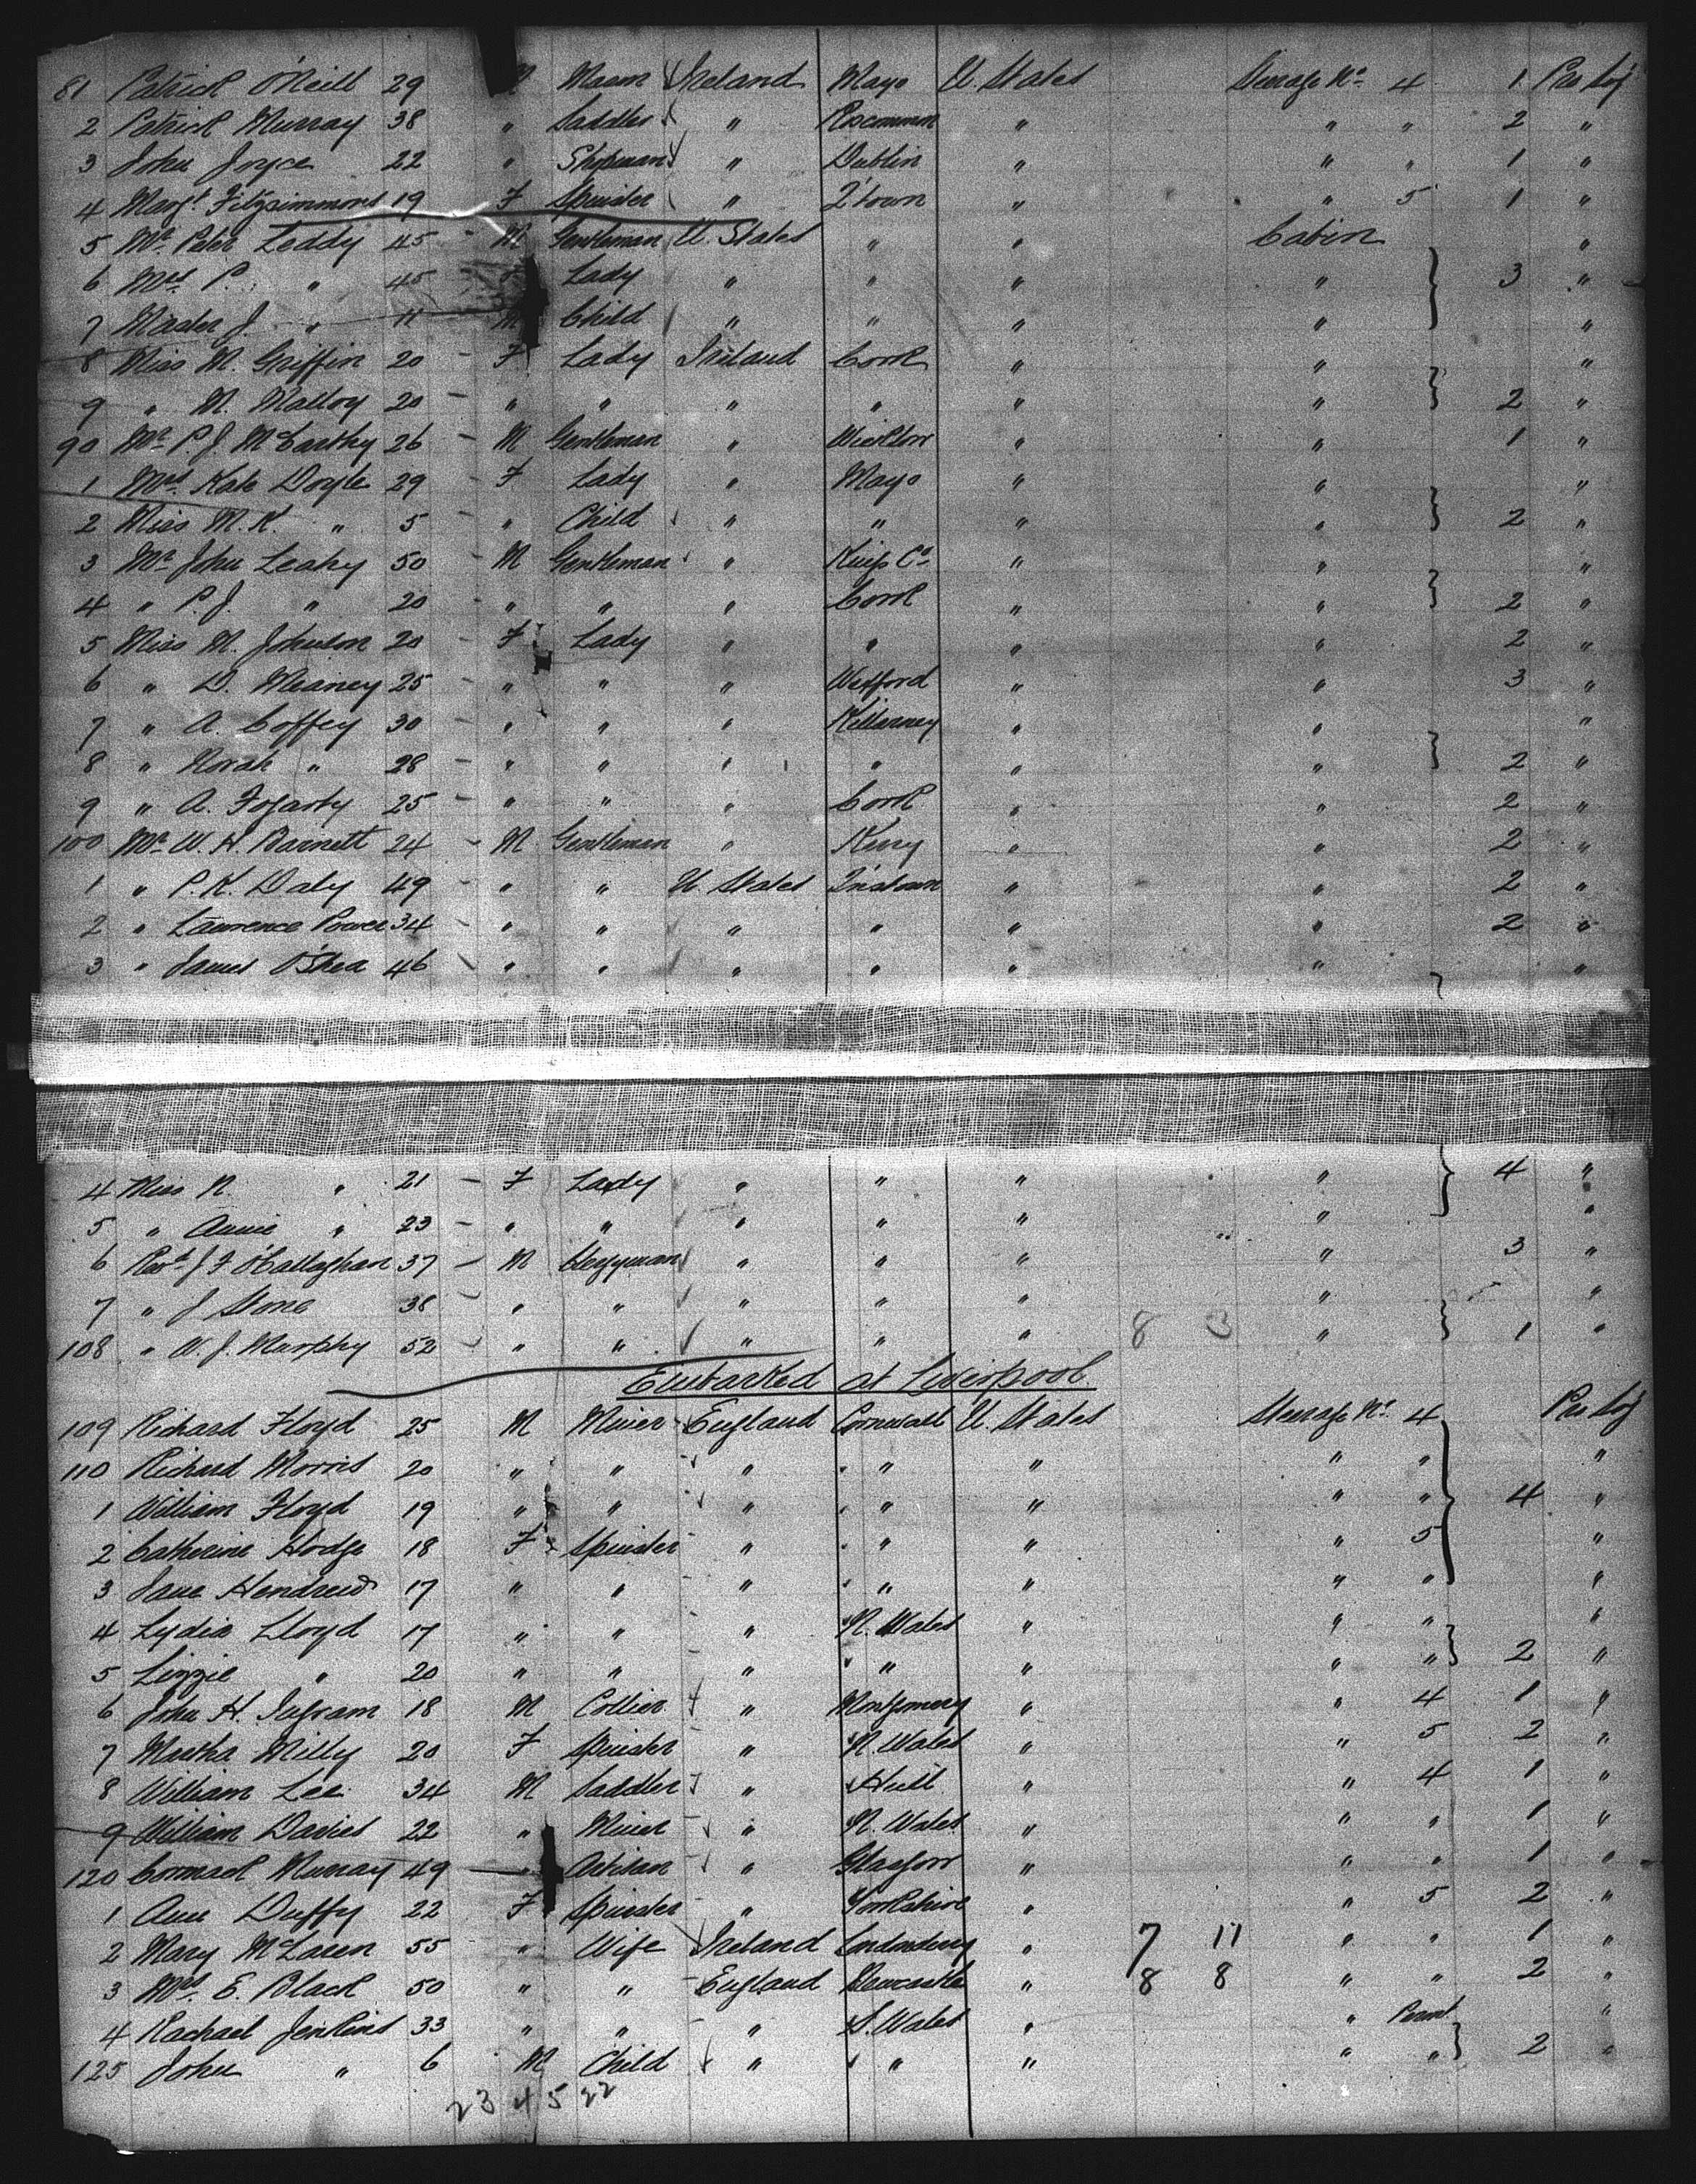 81 Patrick O'Neill 29 M Mason Ireland Mayo U. States Steerage No. 4 1 Pro Log
2 Patrick Murray 38 " Saddler " Roscommon " " " 2 "
3 John Joyce 22 " Shopman " Dublin " " " 1 "
4 Margt. Fitzsimmons 19 F Spinster " Q'town " " 5 1 "
5 Mr. Peter Leddy 45 M Gentleman U. States " " Cabin "
6 Mrs. P. " 45 F Lady " " " " } 3 "
7 Master J. " 11 M Child " " " " "
8 Miss M. Griffin 20 F Lady Ireland Cork " " "
9 " M. Malloy 20 " " " " " " } 2 "
90 Mr. P. J. McCarthy 26 M Gentleman " Wicklow " " 1 "
1 Mrs. Kate Doyle 29 F Lady " Mayo " " "
2 Miss M. K. " 5 " Child " " " " } 2 "
3 Mr. John Leahy 50 M Gentleman " Kings Co. " " "
4 " P. J. " 20 " " " Cork " " } 2 "
5 Miss M. Johnson 20 F Lady " " " " 2 "
6 " D. Meaney 25 " " " Wexford " " 3 "
7 " A. Coffey 30 " " " Killarney " " "
8 " Norah " 28 " " " " " " } 2 "
9 " A. Fogarty 25 " " " Cork " " 2 "
100 Mr. W. H. Barnett 24 M Gentleman " Kerry " " 2 "
1 " P. K. Daly 49 " " U. States Q'nstown " " 2 "
2 " Lawrence Power 34 " " " " " " 2 "
3 " James O'Shea 46 " " " " " " "
4 Miss N. " 21 F Lady " " " " } 4 "
5 " Annie " 23 " " " " " " "
6 Revd. J F O'Callaghan 37 M Clergyman " " " " 3 "
7 " J Stone 38 " " " " " " "
108 " W. J. Murphy 52 " " " " " 8 3 " } 1 "
Embarked at Liverpool
109 Richard Floyd 25 M Miner England Cornwall U. States Steerage No. 4 Pro Log
110 Richard Morris 20 " " " " " " " "
1 William Floyd 19 " " " " " " " } 4 "
2 Catherine Hodge 18 F Spinster " " " " 5 "
3 Jane Hendrew 17 " " " " " " " "
4 Lydia Lloyd 17 " " " N. Wales " " " "
5 Lizzie " 20 " " " " " " " } 2 "
6 John H. Ingram 18 M Collier " Montgomery " " 4 1 "
7 Martha Milly 20 F Spinster " N. Wales " " 5 2 "
8 William Lee 34 M Saddler " Hull " " 4 1 "
9 William Davies 22 " Miner " N. Wales " " " 1 "
120 Cormack Murray 49 " Artisan " Glasgow " " " 1 "
1 Ann Duffy 22 F Spinster " Yorkshire " " 5 2 "
2 Mary McLaren 55 " Wife Ireland Londonderry " 7 11 " " 1 "
3 Mrs. E. Black 50 " " England Newcastle " 8 8 " " 2 "
4 Rachael Jenkins 33 " " " S. Wales " " "
125 John " 6 M Child " " " " " } 2 "
23 4 5 22